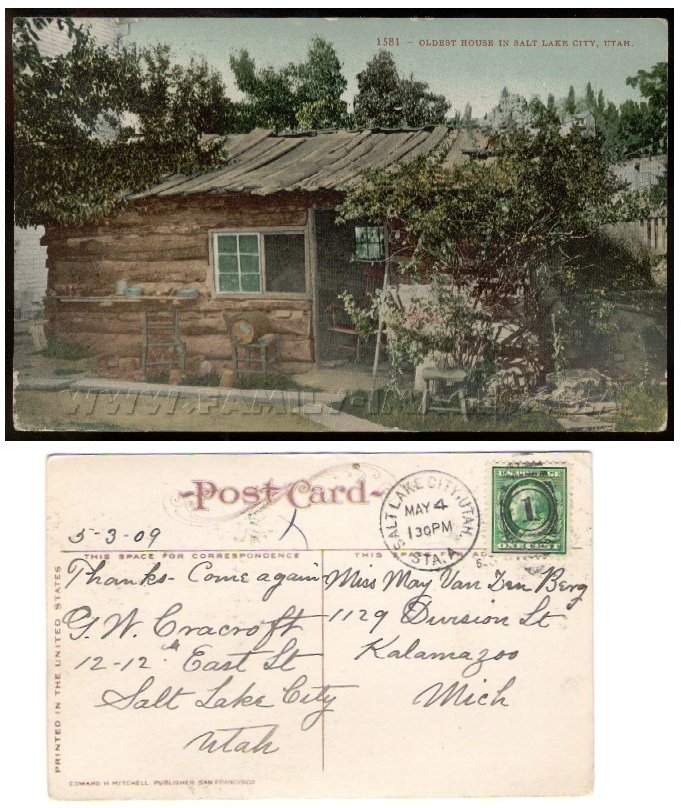 1581 – OLDEST HOUSE IN SALT LAKE CITY, UTAH.
WWW.FAMILY-IMAGES.COM
Post Card
5-3-09
SALT LAKE CITY, UTAH
MAY 4
130PM
STA. A
1
THIS SPACE FOR CORRESPONDENCE
Thanks- Come again
G. W. Cracroft
12-12th East St
Salt Lake City
Utah
Miss May Van Den Berg
1129 Division St
Kalamazoo
Mich
PRINTED IN THE UNITED STATES
EDWARD H MITCHELL, PUBLISHER SAN FRANCISCO